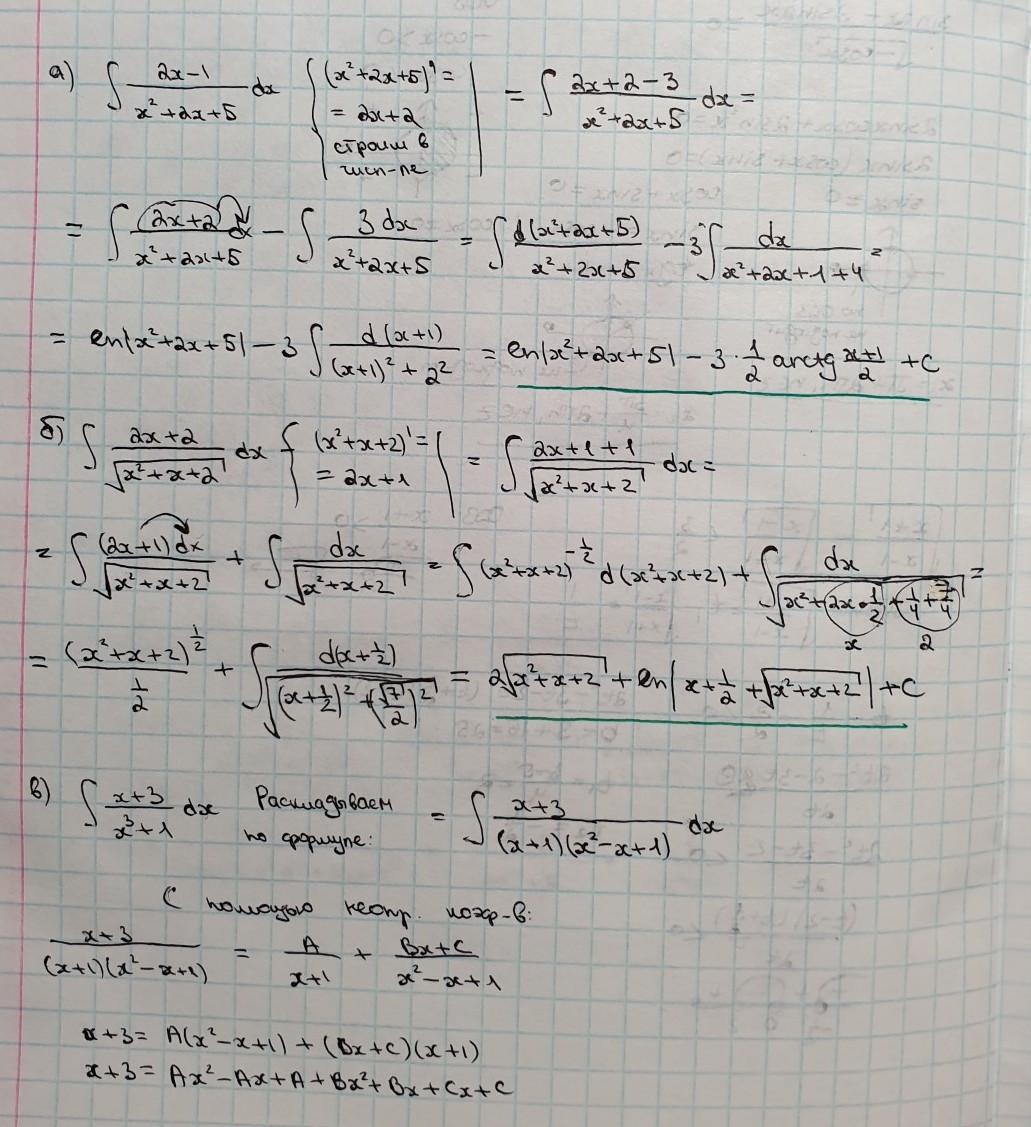 а) ∫ (2x-1)/(x²+2x+5) dx { (x²+2x+5)' = = 2x+2 строим в числ-ле | = ∫ (2x+2-3)/(x²+2x+5) dx =
= ∫ (2x+2)dx/(x²+2x+5) - ∫ 3dx/(x²+2x+5) = ∫ d(x²+2x+5)/(x²+2x+5) - 3∫ dx/(x²+2x+1+4) =
= ln|x²+2x+5| - 3 ∫ d(x+1)/((x+1)²+2²) = ln|x²+2x+5| - 3·1/2 arctg (x+1)/2 + C
б) ∫ (2x+2)/√(x²+x+2) dx { (x²+x+2)' = = 2x+1 | = ∫ (2x+1+1)/√(x²+x+2) dx =
= ∫ (2x+1)dx/√(x²+x+2) + ∫ dx/√(x²+x+2) = ∫ (x²+x+2)^(-1/2) d(x²+x+2) + ∫ dx/√(x²+2x·1/2+1/4+7/4) =
x 2
= (x²+x+2)^(1/2)/(1/2) + ∫ d(x+1/2)/√((x+1/2)²+(√7/2)²) = 2√(x²+x+2) + ln|x+1/2+√(x²+x+2)| + C
в) ∫ (x+3)/(x³+1) dx Раскладываем по формуле: = ∫ (x+3)/((x+1)(x²-x+1)) dx
С помощью неопр. коэф-в:
(x+3)/((x+1)(x²-x+1)) = A/(x+1) + (Bx+C)/(x²-x+1)
x+3 = A(x²-x+1) + (Bx+C)(x+1)
x+3 = Ax²-Ax+A+Bx²+Bx+Cx+C